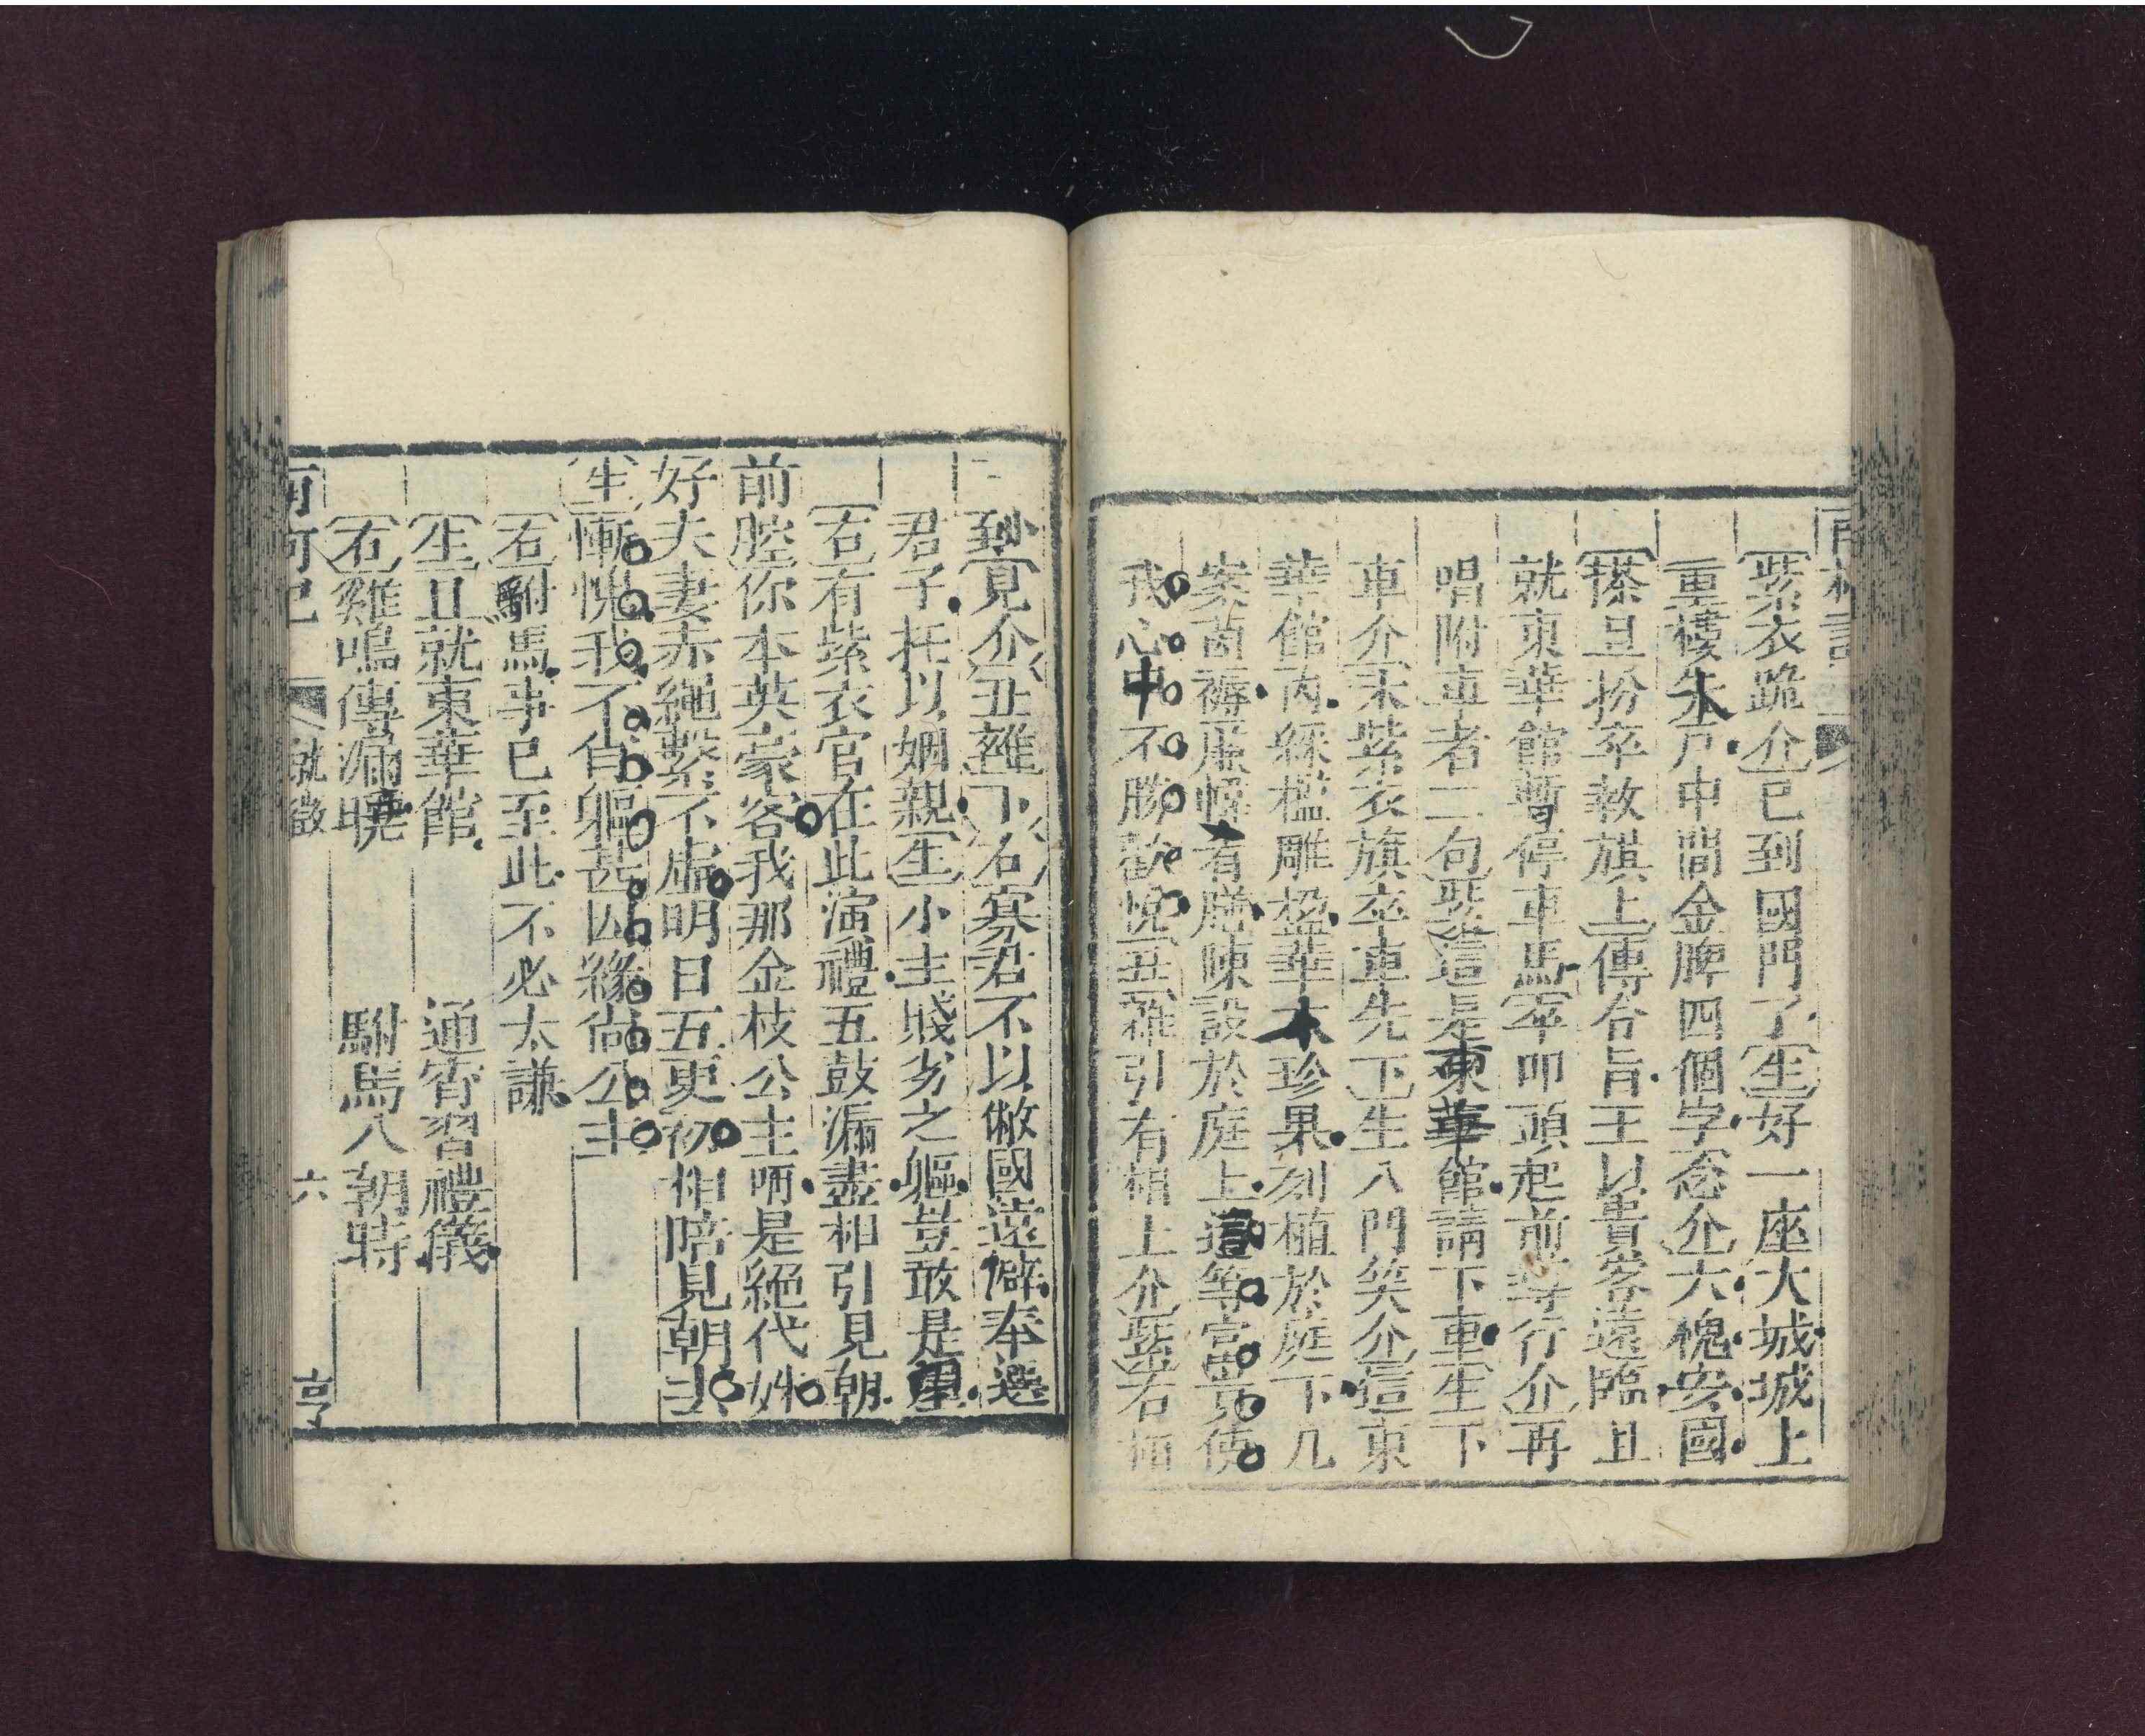 紫衣跪介已到國門了生好一座大城城上
重樓朱戶中間金牌四個字念介大槐安國
搽旦扮卒教旗上傳令旨王以貴客遠臨且
就東華館暫停車馬卒叩頭起前導行介再
唱附車者二句紫這是東華館請下車生下
車介末紫衣旗卒車先下生入門笑介這東
華館內綵檻雕楹華木珍果列植於庭下几
案茵褥簾幃有膳陳設於庭上這等富貴使
我心中不勝歡悅丑雜引右相上介紫右相
到見介丑雜下右寡君不以敝國遠僻奉迎
君子托以姻親生小生賤劣之軀豈敢是望
右有紫衣官在此演禮五鼓漏盡相引見朝
前腔你本英豪客我那金枝公主啊是絕代姝
好夫妻赤繩繫不虛明日五更初相陪見朝去
生慚愧我不肖軀甚因緣尚公主
右駙馬事已至此不必太謙
生且就東華館 通宵習禮儀
右雞鳴傳漏曉 駙馬入朝時
南柯記 就徵 六 亨